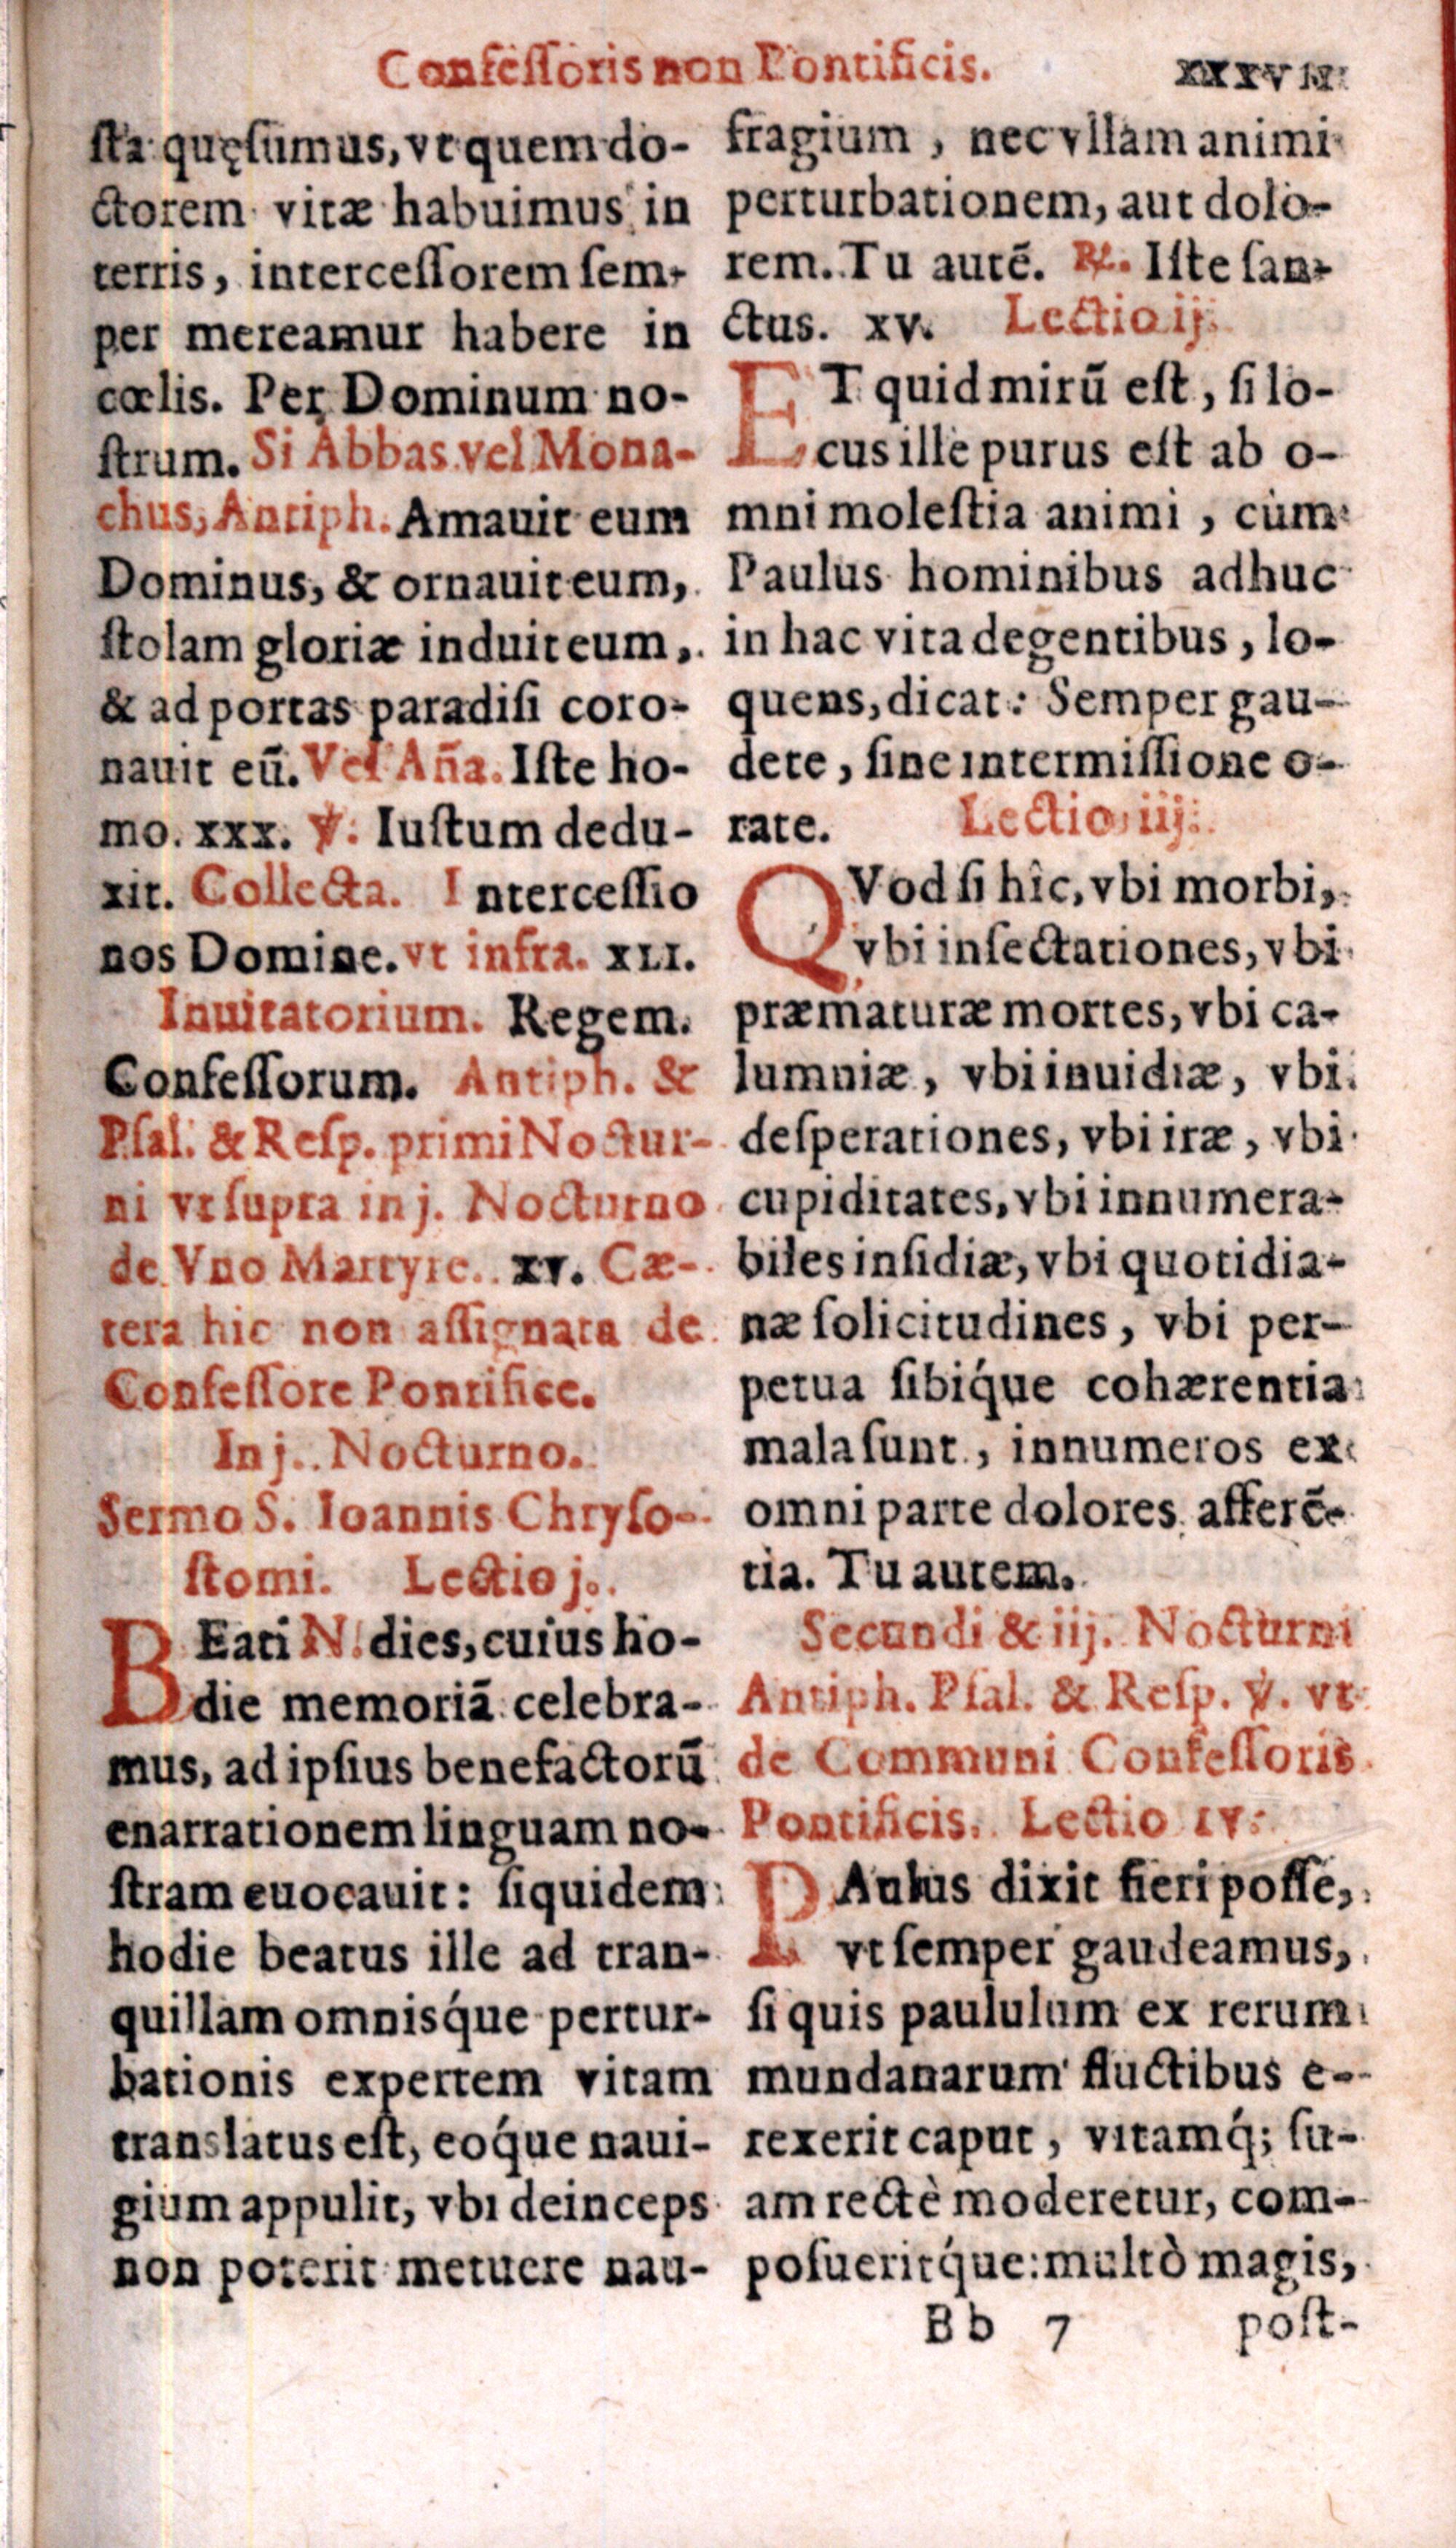 Confeſſoris non Pontificis.
ſta quęſumus, vt quem do-
ctorem vitæ habuimus in
terris, interceſſorem ſem-
per mereamur habere in
cœlis. Per Dominum no-
ſtrum. Si Abbas vel Mona-
chus, Antiph. Amauit eum
Dominus, & ornauit eum,
ſtolam gloriæ induit eum,
& ad portas paradiſi coro-
nauit eū. Vel Aña. Iſte ho-
mo. xxx. ℣. Iuſtum dedu-
xit. Collecta. Interceſſio
nos Domine. vt infra. XLI.
Inuitatorium. Regem.
Confeſſorum. Antiph. &
Pſal. & Reſp. primi Noctur-
ni vt ſupra in j. Nocturno
de Vno Martyre. XV. Cæ-
tera hic non aſſignata de
Confeſſore Pontifice.
In j. Nocturno.
Sermo S. Ioannis Chryſo-
ſtomi. Lectio j.
BEati N. dies, cuius ho-
die memoriā celebra-
mus, ad ipſius benefactorū
enarrationem linguam no-
ſtram euocauit: ſiquidem
hodie beatus ille ad tran-
quillam omnisq́ue pertur-
bationis expertem vitam
translatus eſt, eoq́ue naui-
gium appulit, vbi deinceps
non poterit metuere nau-
fragium, nec vllam animi
perturbationem, aut dolo-
rem. Tu autē. ℟. Iſte ſan-
ctus. xv. Lectio ij.
ET quid mirū eſt, ſi lo-
cus ille purus eſt ab o-
mni moleſtia animi, cùm
Paulus hominibus adhuc
in hac vita degentibus, lo-
quens, dicat: Semper gau-
dete, ſine intermiſſione o-
rate. Lectio iij.
QVod ſi hîc, vbi morbi,
vbi inſectationes, vbi
præmaturæ mortes, vbi ca-
lumniæ, vbi inuidiæ, vbi
deſperationes, vbi iræ, vbi
cupiditates, vbi innumera-
biles inſidiæ, vbi quotidia-
næ ſolicitudines, vbi per-
petua ſibiq́ue cohærentia
mala ſunt, innumeros ex
omni parte dolores afferē-
tia. Tu autem.
Secundi & iij. Nocturni
Antiph. Pſal. & Reſp. ℣. vt
de Communi Confeſſoris
Pontificis. Lectio IV.
PAulus dixit fieri poſſe,
vt ſemper gaudeamus,
ſi quis paululum ex rerum
mundanarum fluctibus e-
rexerit caput, vitamq́; ſu-
am rectè moderetur, com-
poſueritq́ue: multò magis,
Bb 7 poſt-